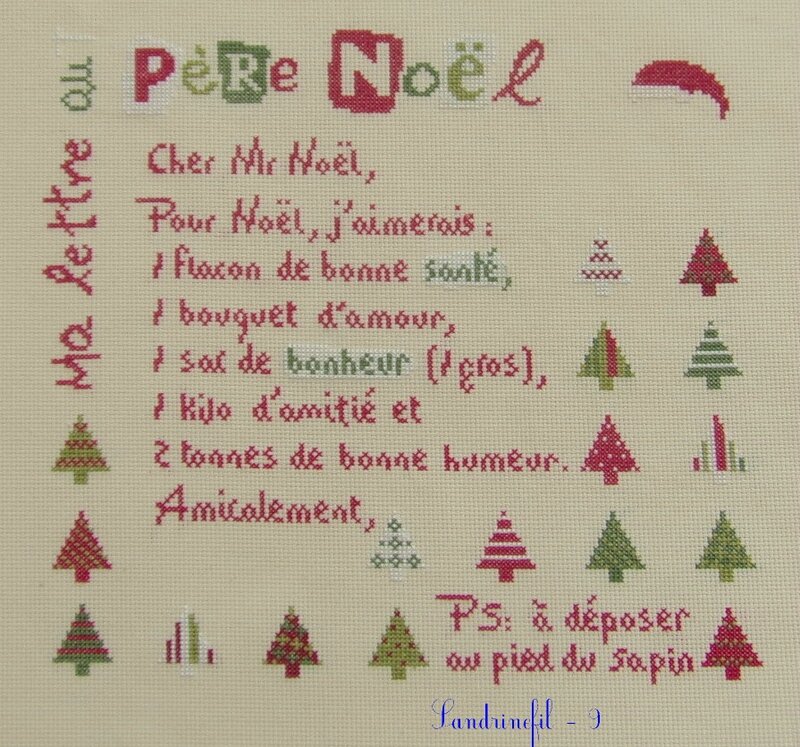 Ma lettre au
Père Noël
Cher Mr Noël,
Pour Noël, j'aimerais :
1 flacon de bonne santé,
1 bouquet d'amour,
1 sac de bonheur (1 gros),
1 kilo d'amitié et
2 tonnes de bonne humeur.
Amicalement,
PS: à déposer
au pied du sapin
Sandrinefil - 9